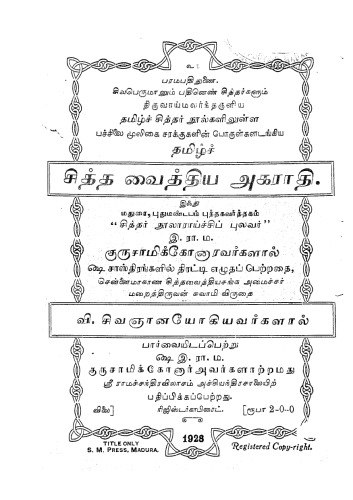 உ
பரமபதிதுணை.
சிவபெருமானும் பதினெண் சித்தர்களும்
திருவாய்மலர்ந்தருளிய
தமிழ்ச் சித்தர் நூல்களிலுள்ள
பச்சிலை மூலிகை சரக்குகளின் பொருள்களடங்கிய
தமிழ்ச்
சித்த வைத்திய அகராதி.
இஃது
மதுரை, புதுமண்டபம் புத்தகவர்த்தகம்
"சித்தர் நூலாராய்ச்சிப் புலவர்"
இ. ரா. ம.
குருசாமிக்கோனாரவர்களால்
ஷை சாஸ்திரங்களில் திரட்டி எழுதப் பெற்றதை,
சென்னைமாகாண சித்தவைத்தியசங்க அமைச்சர்
மறைத்திருவன் சுவாமி விருதை
வி. சிவஞானயோகியவர்களால்
பார்வையிடப்பெற்று
ஷை இ. ரா. ம.
குருசாமிக்கோனார்அவர்களாற்றமது
ஸ்ரீ ராமச்சந்திரவிலாசம் அச்சியந்திரசாலையிற்
பதிப்பிக்கப்பெற்றது.
விலை] ரிஜிஸ்டர்காபிரைட். [ரூபா 2-0-0
1928
TITLE ONLY
S. M. PRESS, MADURA.
Registered Copy-right.